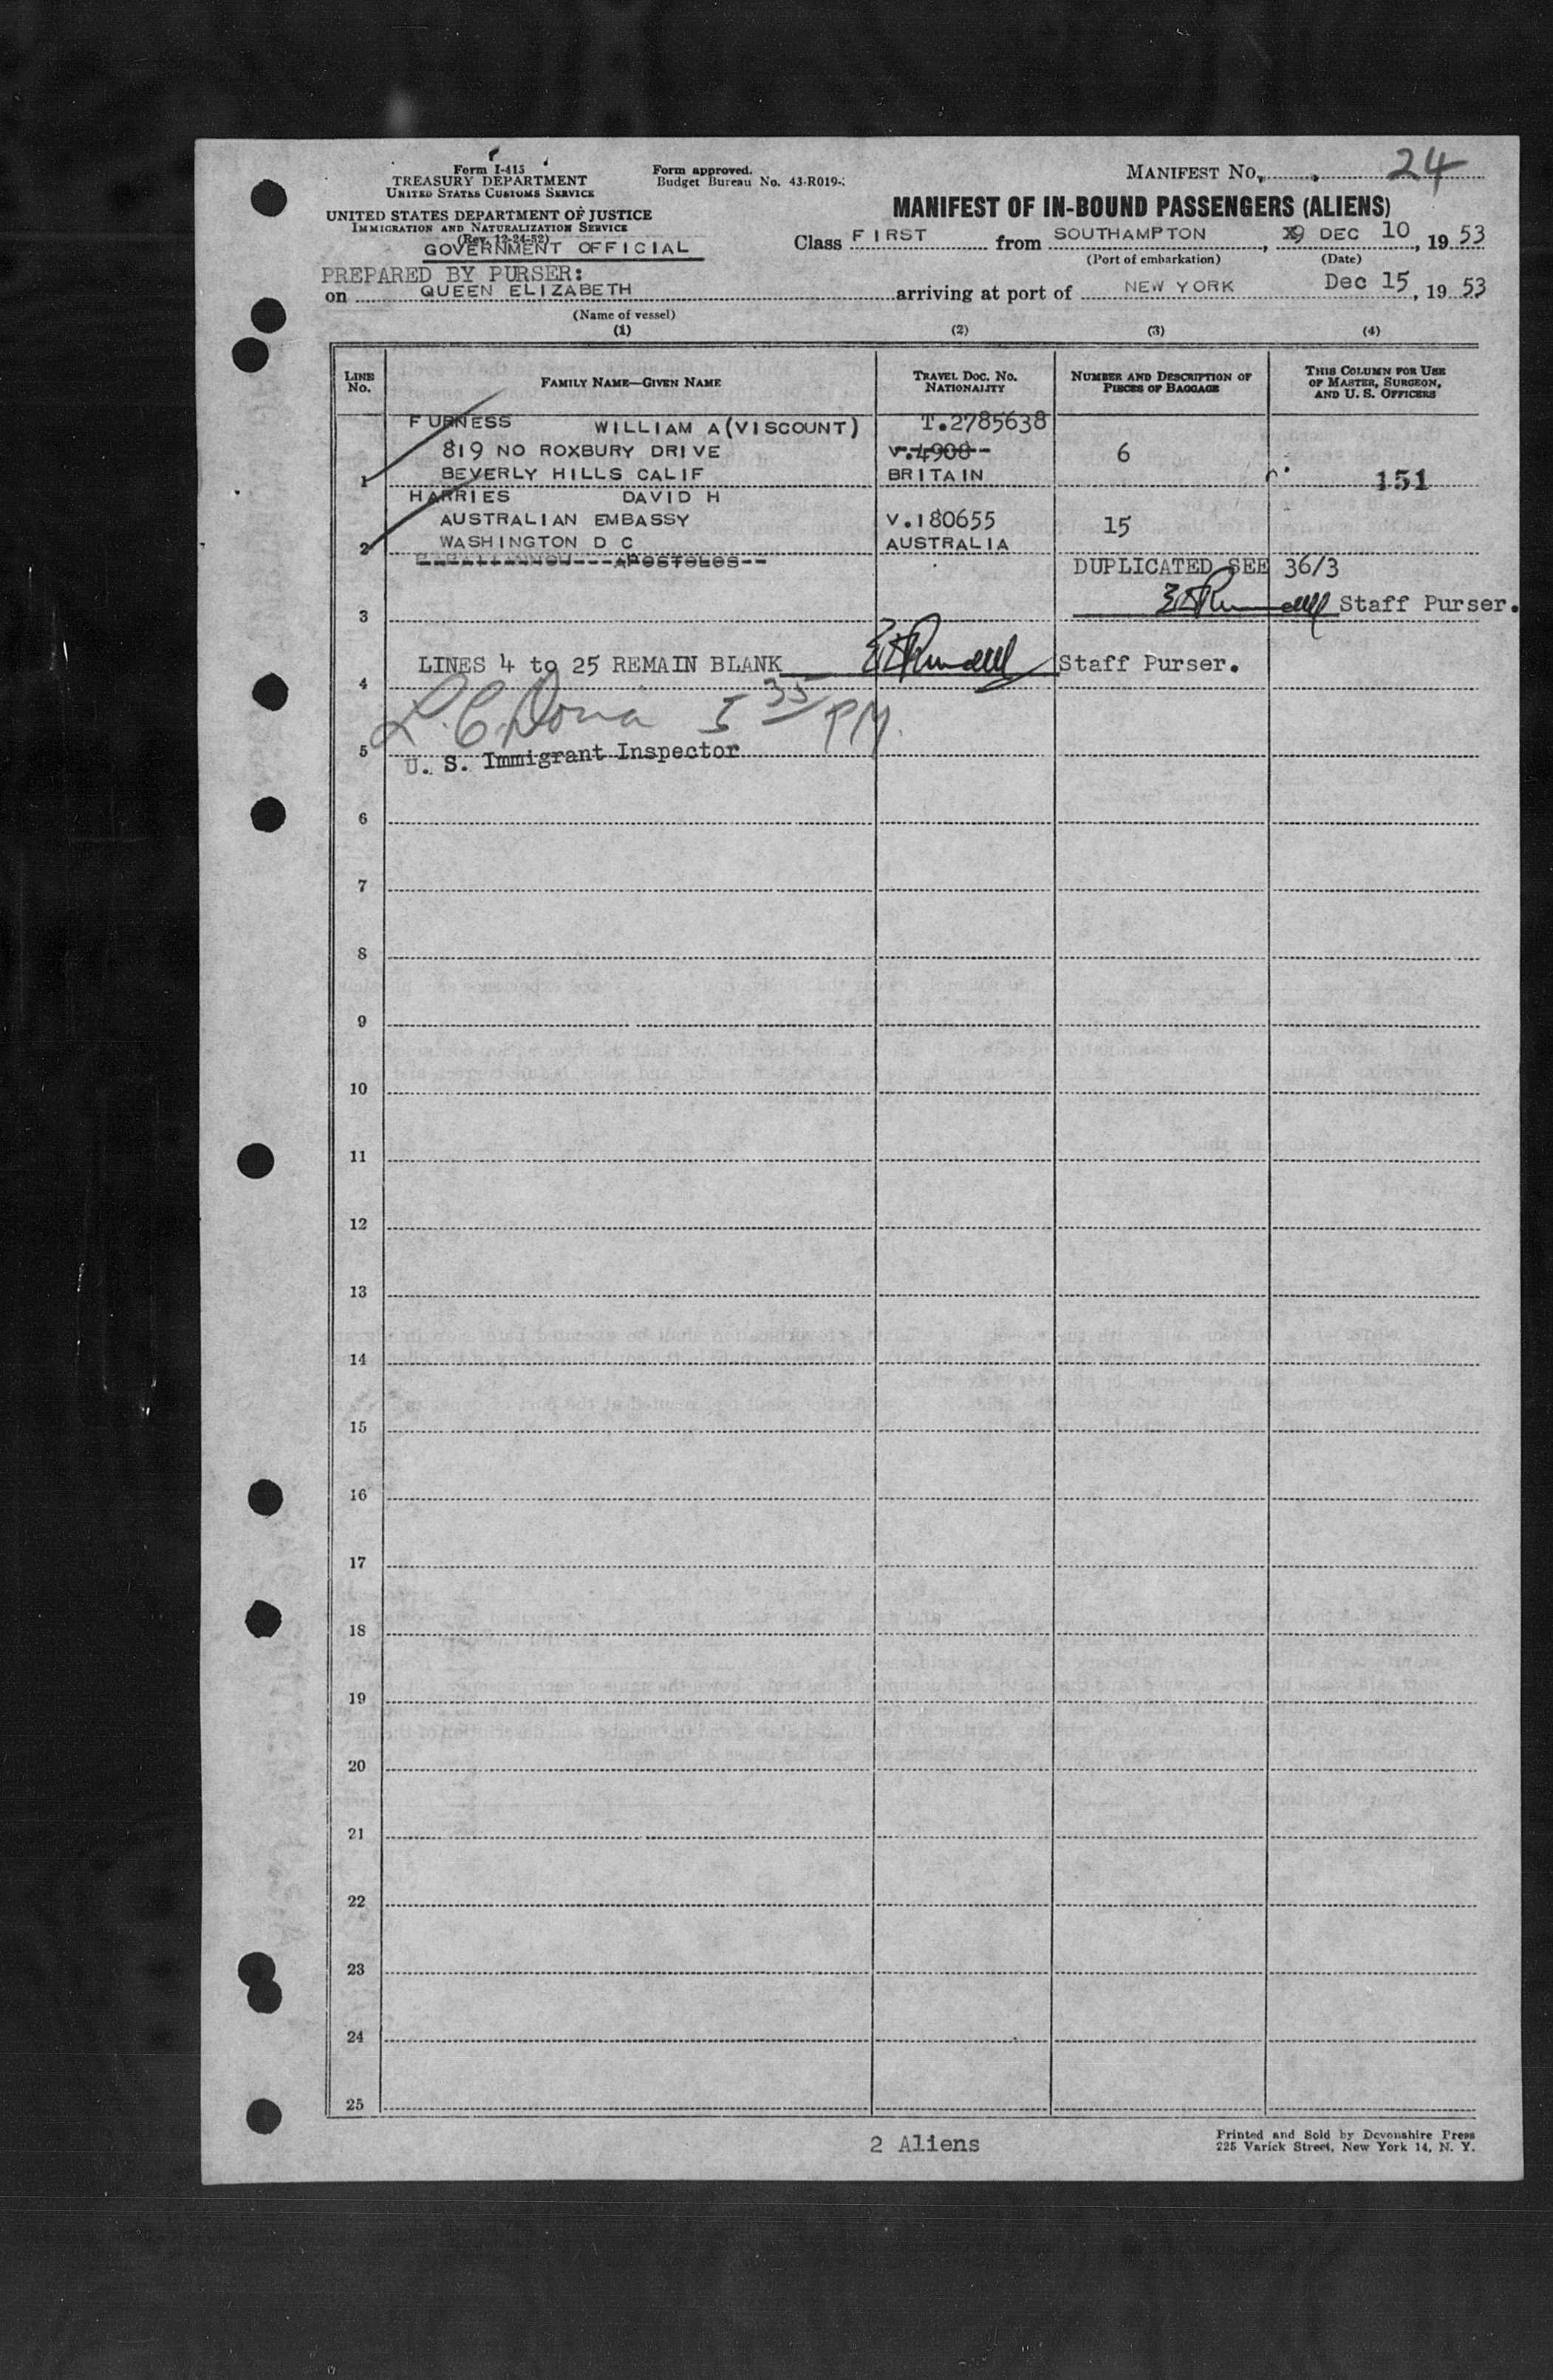 Form I-415
TREASURY DEPARTMENT
UNITED STATES CUSTOMS SERVICE
Form approved.
Budget Bureau No. 43-R019-
MANIFEST NO. 24
UNITED STATES DEPARTMENT OF JUSTICE
IMMIGRATION AND NATURALIZATION SERVICE
(Rev. 12-24-52)
MANIFEST OF IN-BOUND PASSENGERS (ALIENS)
GOVERNMENT OFFICIAL
Class FIRST from SOUTHAMPTON, 9 DEC 10, 19 53
(Port of embarkation) (Date)
PREPARED BY PURSER:
on QUEEN ELIZABETH arriving at port of NEW YORK Dec 15, 19 53
(Name of vessel)
(1) (2) (3) (4)
LINE No. FAMILY NAME—GIVEN NAME TRAVEL DOC. NO. NATIONALITY NUMBER AND DESCRIPTION OF PIECES OF BAGGAGE THIS COLUMN FOR USE OF MASTER, SURGEON, AND U. S. OFFICERS
FURNESS WILLIAM A(VISCOUNT) T.2785638
819 NO ROXBURY DRIVE V.4908 6
1 BEVERLY HILLS CALIF BRITAIN 151
HARRIES DAVID H
AUSTRALIAN EMBASSY V.180655 15
2 WASHINGTON D C AUSTRALIA
APOSTOLOS
DUPLICATED SEE 36/3
3 Staff Purser.
LINES 4 to 25 REMAIN BLANK Staff Purser.
4
35 PM.
5 U. S. Immigrant Inspector
6
7
8
9
10
11
12
13
14
15
16
17
18
19
20
21
22
23
24
25
2 Aliens
Printed and Sold by Devonshire Press
225 Varick Street, New York 14, N. Y.